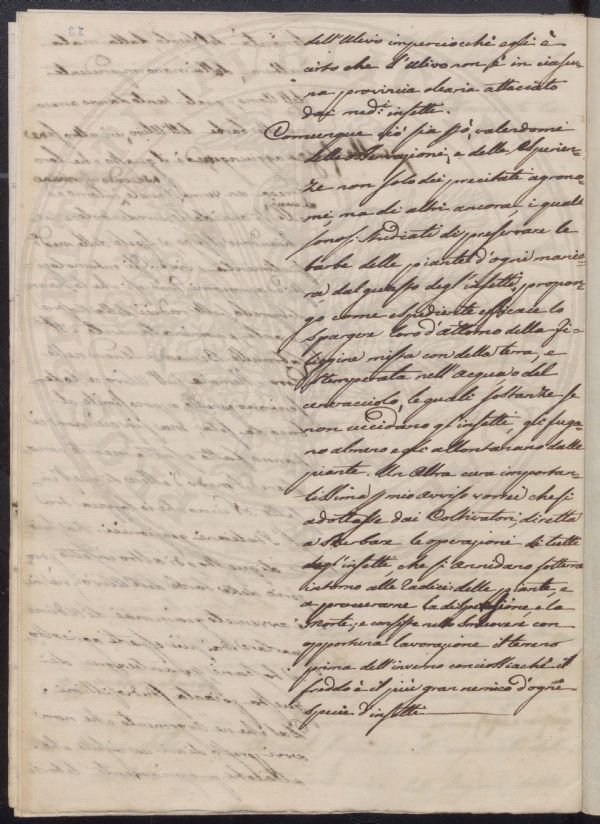 dell'Ulivo imperciocchè egli è
certo che l'Ulivo non è in ciascu-
na provincia olearia attaccato
dai med.i insetti.
Comunque ciò sia però, valendomi
delle osservazioni, e delle esperien-
ze non solo dei precitati agrono-
mi, ma di altri ancora, i quali
sonosi studiati di preservare le
barbe delle piante d'ogni manie-
ra dal guasto degl'insetti, propon-
go come espediente efficace lo
spargere loro d'attorno della fi-
liggine mista con della terra, e
stemperata nell'acqua, o del
ceneracciolo, le quali sostanze se
non uccidono gl'insetti, gli fuga-
no almeno e gli allontanano dalle
piante. Un'altra cura importan-
tissima p mio avviso vorrei che si
adottasse dai Coltivatori, diretta
a sturbare le operazioni di tutti
degl'insetti che si annidano sotterra
intorno alle radici delle piante, e
a procurarne la dispersione, e la
morte; e consiste nello smuovere con
opportuna lavorazione il terreno
prima dell'inverno conciossiachè il
freddo è il più gran nemico d'ogni
specie d'insetti